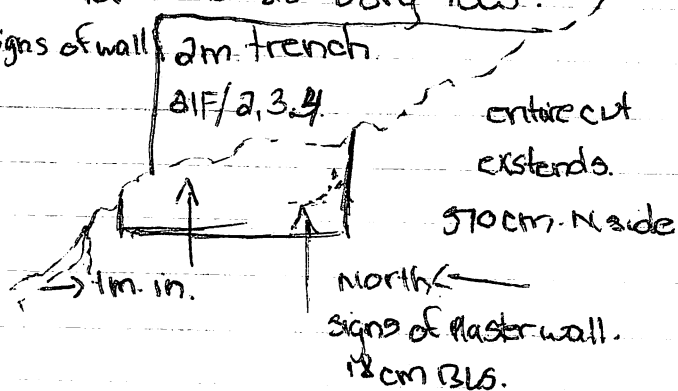 signs of wall
2m trench
21F/2,3,4
entire cut
exstends.
570cm. N side
→ 1m. in.
North ←
signs of Plaster wall.
18 cm BLS.